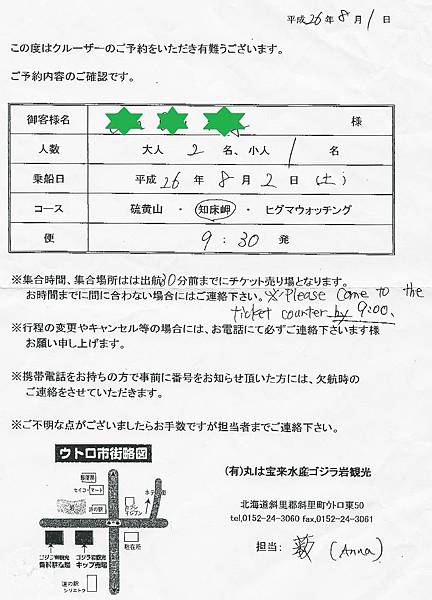 平成26年8月1日
この度はクルーザーのご予約をいただき有難うございます。
ご予約内容のご確認です。
御客様名 様
人数 大人 2 名、小人 1 名
乗船日 平成 26 年 8 月 2 日 (土)
コース 硫黄山 ・ 知床岬 ・ ヒグマウォッチング
便 9 : 30 発
※集合時間、集合場所はは出航30分前までにチケット売り場となります。
お時間までに間に合わない場合にはご連絡下さい。※Please come to the
ticket counter by 9:00.
※行程の変更やキャンセル等の場合には、お電話にて必ずご連絡下さいます様
お願い申し上げます。
※携帯電話をお持ちの方で事前に番号をお知らせ頂いた方には、欠航時の
ご連絡をさせていただきます。
※ご不明な点がございましたらお手数ですが担当者までご連絡下さい。
ウトロ市街略図
郵便局
セイコーマート
道の駅
セブンイレブン
ホテル街
駐在所
ゴジラ岩観光
ゴジラ岩観光
キップ売場
道の駅
シリエトク
(有)丸は宝来水産ゴジラ岩観光
北海道斜里郡斜里町ウトロ東50
tel,0152-24-3060 fax,0152-24-3061
担当: 薮 (Anna)